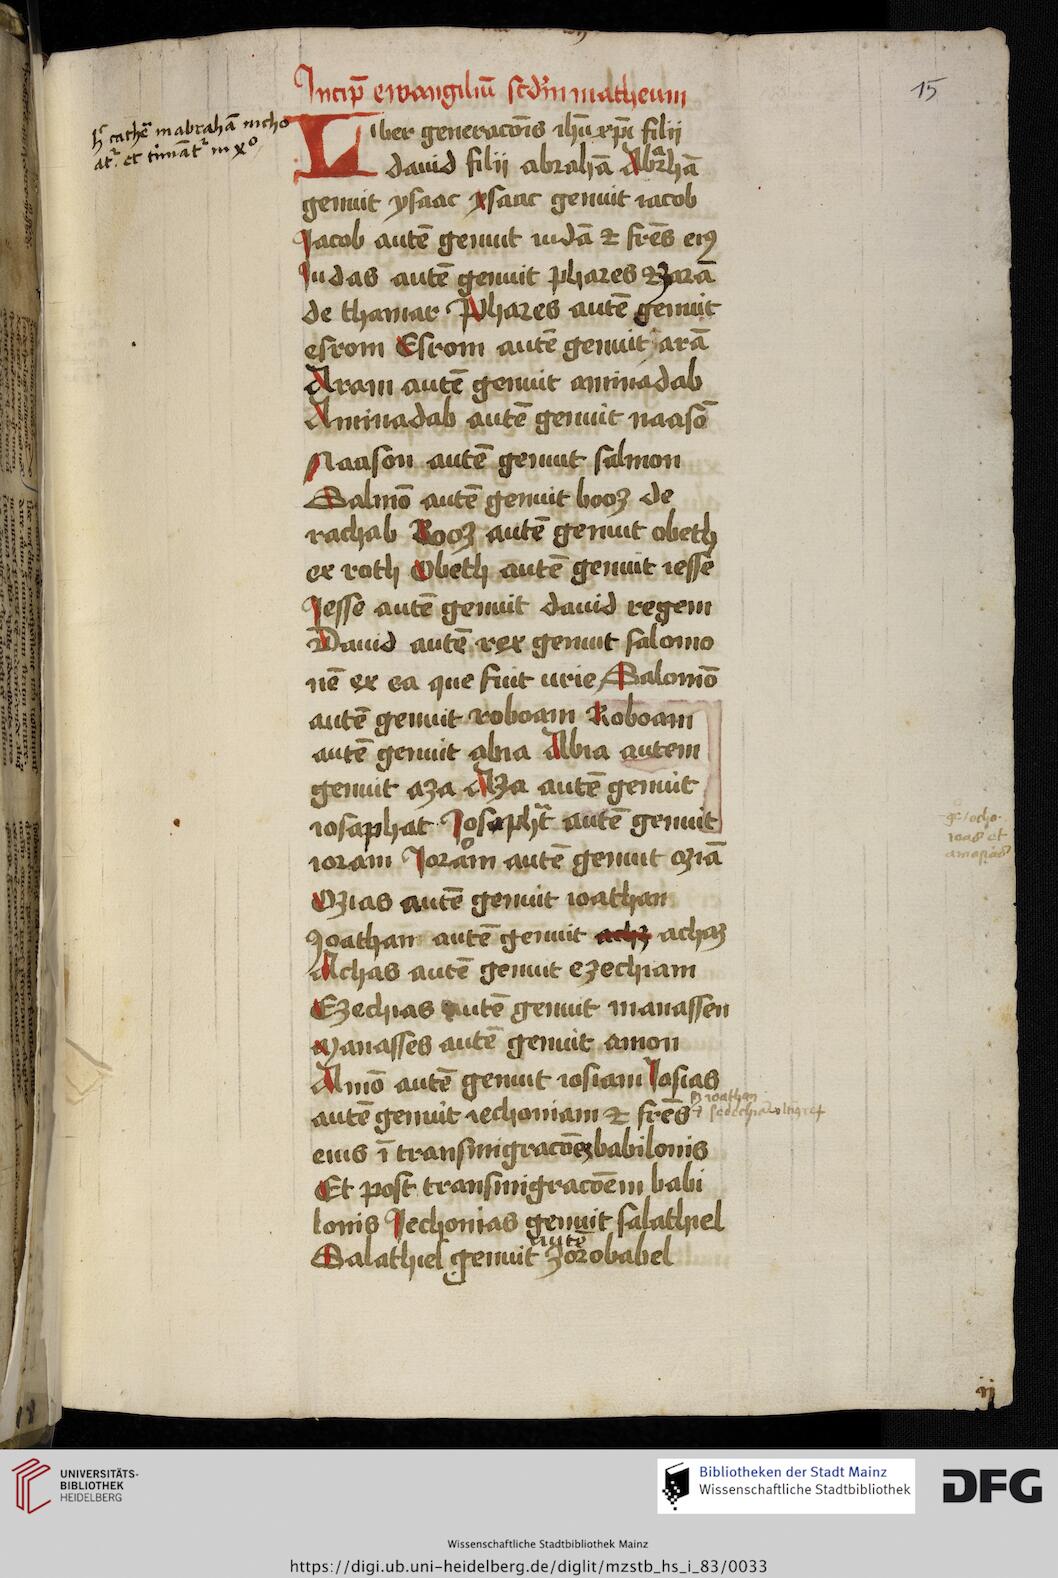 Incip̄ ewangiliū scd̄m matheum
15
Liber generacōis ihū xp̄i filii
dauid filii abrahā Abrhā
genuit ysaac ysaac genuit iacob
Jacob autē genuit iudā et frēs eiꝰ
Judas autē genuit phares et zarā
de thamar Phares autē genuit
esrom Esrom autē genuit arā
Aram autē genuit aminadab
Aminadab autē genuit naasō
Naason autē genuit salmon
Salmō autē genuit booz de
rachab Booz autē genuit obeth
ex ruth Obeth autē genuit iesse
Jesse autē genuit dauid regem
Dauid autē rex genuit salomo
nē ex ea que fuit urie Salomō
autē genuit roboam Roboam
autē genuit abia Abia autem
genuit aza Aza autē genuit
iosaphat Josapht̄ autē genuit
ioram Joram autē genuit oziā
Ozias autē genuit ioathan
Joathan autē genuit achaz
Achas autē genuit ezechiam
Ezechias autē genuit manassen
Manasses autē genuit amon
Amō autē genuit iosiam Josias
autē genuit iechoniam et frēs
eius ī transmigracōē babilonis
Et post transmigracōem babi
lonis Jechonias genuit salathiel
Salathiel genuit autē zorobabel
ij
UNIVERSITÄTS-
BIBLIOTHEK
HEIDELBERG
Bibliotheken der Stadt Mainz
Wissenschaftliche Stadtbibliothek
DFG
Wissenschaftliche Stadtbibliothek Mainz
https://digi.ub.uni-heidelberg.de/diglit/mzstb_hs_i_83/0033